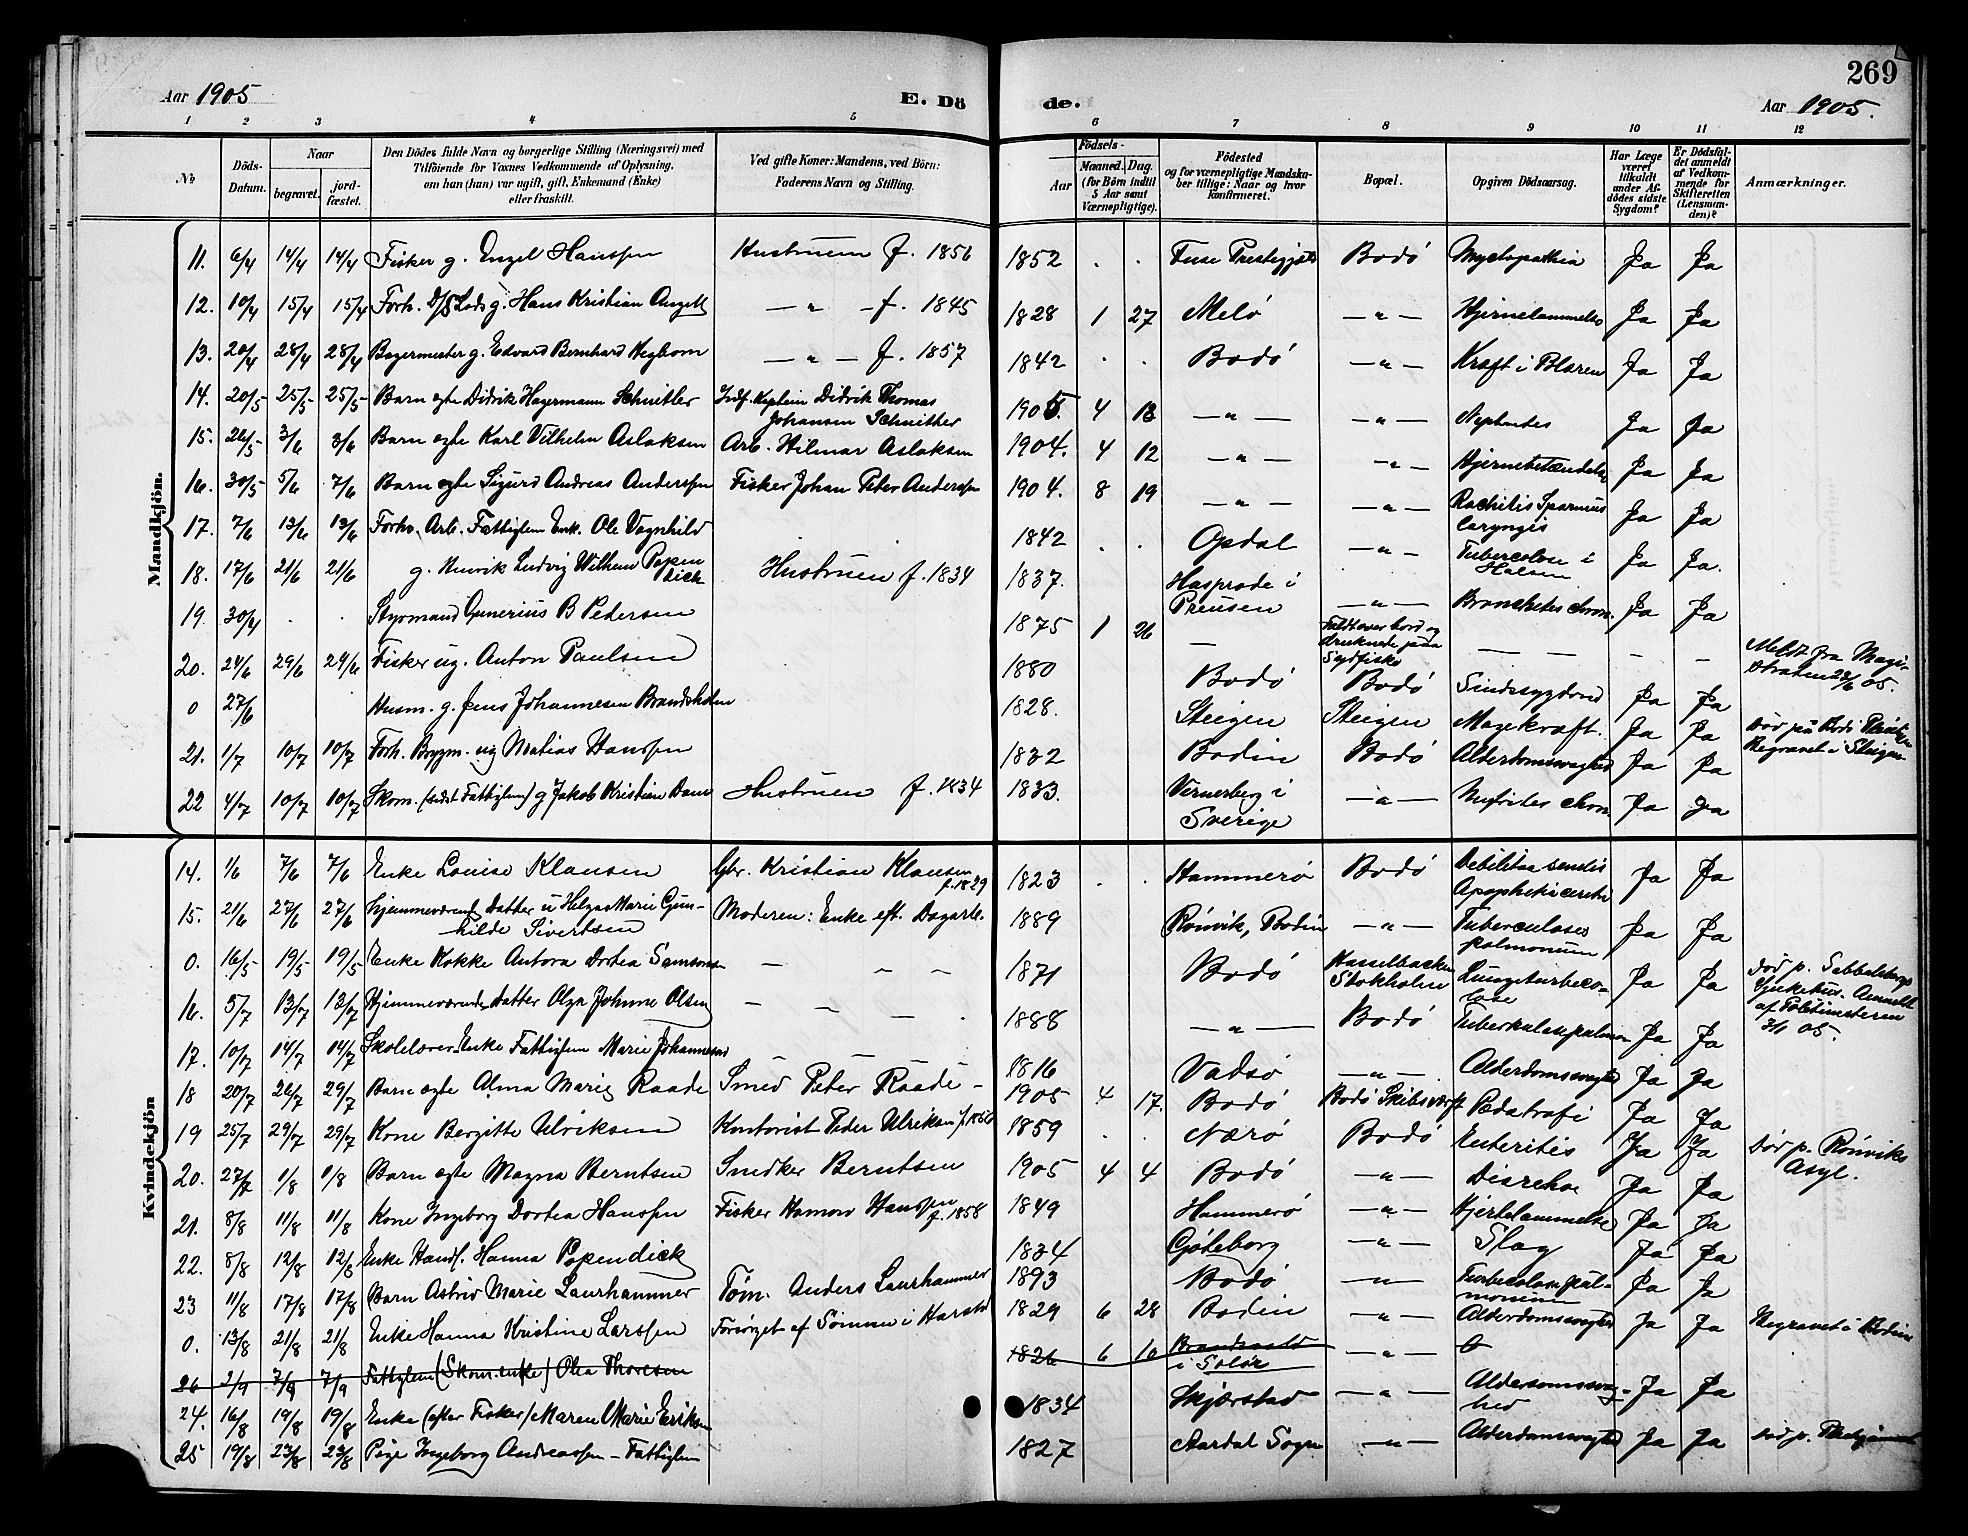 269
Aar 1905
E. Dö
de.
Aar 1905.
1 2 3 4 5 6 7 8 9 10 11 12
No
Döds-
Datum.
Naar
begravet.
jord-
fæstet.
Den Dödes fulde Navn og borgerlige Stilling (Næringsvei) med
Tilföiende for Voxnes Vedkommende af Oplysning,
om han (hun) var ugift, gift, Enkemand (Enke)
eller fraskilt.
Ved gifte Koner: Mandens, ved Börn:
Faderens Navn og Stilling.
Födsels-
Aar
Maaned. Dag.
(for Börn indtil
5 Aar samt
Værnepligtige).
Födested
og for værnepligtige Mandska-
ber tillige: Naar og hvor
konfirmeret.
Bopæl.
Opgiven Dödsaarsag.
Har Læge
været
tilkaldt
under Af-
dödes sidste
Sygdom?
Er Dödsfal-
det anmeldt
af Vedkom-
mende for
Skifteretten
(Lensman-
den)?
Anmærkninger.
Mandkjön.
11. 6/4 14/4 14/4 Fisker g. Engel Hanssen Hustruen f. 1856 1852 . . Fuse Bodö Myelopathia Ja Ja
12. 10/4 15/4 15/4 Forh. D/S Lods g. Hans Kristian Angell — " — f. 1845 1828 1 27 Melö — " — Hjernelammelse Ja Ja
13. 20/4 28/4 28/4 Bagermester g. Edvard Bernhard Hegbom — " — f. 1857 1842 . . Bodö — " — Kræft i Blæren Ja Ja
14. 20/5 25/5 25/5 Barn ægte Didrik Hagermann Schnitler Inf. Kaptein Didrik Thomas
Johansen Schnitler 1905 4 18 — " — Nephrites Ja Ja
15. 26/5 3/6 3/6 Barn ægte Karl Vilhelm Aslaksen Arb. Hilmar Aslaksen 1904. 4 12 — " — — " — Hjernebetændelse Ja Ja
16. 30/5 5/6 7/6 Barn ægte Sigurd Andreas Anderssen Fisker Johan Peter Anderssen 1904. 8 19 — " — — " — Rachitis Spasmus
laryngis Ja Ja
17. 7/6 13/6 13/6 Forhv. Arb. Fattiglem Enk. Ole Vognhild 1842 . . Opdal — " — Tuberculose i
Halsen Ja Ja.
18. 17/6 21/6 21/6 g. Henrik Ludvig Wilhelm Papen
dick Hustruen f. 1834 1837. Hasprode i
Preusen — " — Bronchites chron. Ja Ja
19. 30/4 . . Styrmand Gunerius B Pedersen 1875 1 26 — Faldt over bord og
druknede paa
Sydfiske — — — —
Meldt fra Magi-
straten 28/6 05.
20. 24/6 29/6 29/6 Fisker ug. Anton Paulsen 1880 Bodö Bodö Sindssygdom Ja Ja
0 27/6 Husm. g. Jens Johannesen Brandsholm 1828. Steigen Steigen Mavekræft. Ja Ja
Begravet i Steigen
21. 1/7 10/7 10/7 Forh. Brygm. ug Matias Hanssen 1832 Bodin Bodö Alderdomssvaghed Ja Ja
22 4/7 10/7 10/7 Skom. (sidst Fattiglem) g Jakob Kristian Dam Hustruen f. 1834 1833. Vernerberg i
Sverige — " — Nefrites chron. Ja Ja
Kvindekjön
14. 1/6 7/6 7/6 Enke Louise Klausen Gbr. Kristian Klausen
f. 1829 1823 . . Hammerö Bodö Debilitas senilis
Ja Ja
15. 21/6 27/6 27/6 Hjemmeværende Datter u Helga Marie Gun-
hilde Sivertsen Moderen: Enke eft. Dagarb. 1889 Rönvik, Bodin — " — Tuberculoses
pulmonum Ja Ja
0. 16/5 19/5 19/5 Enke Kokke Antora Dortea Samsonsen — " — 1871 Bodö Hasselbacken
Stokholm Lungetuberco-
lose Ja Ja
Död p. Sabbatsbergs
Sykehus. Anmeldt
af Politimesteren
05.
16. 5/7 13/7 13/7 Hjemmeværende Datter Olga Johnne Olsen — — " — . 1888 — " — Bodö Ja Ja
17. 10/7 14/7 14/7 Skolelærer-Enke Fattiglem Marie Johannesen — — 1816 Vadsö — " — Alderdomssvaghed Ja Ja
18 20/7 26/7 29/7 Barn ægte Alma Marie Raade Smed Peter Raade - 1905 4 17. Bodö Bodö Skibsværft Pædatrofi Ja Ja
19 25/7 29/7 29/7 Kone Bergitte Ulriksen Kontorist Peder Ulriksen f. 1856 1859 . . Nærö Bodö Enterites Ja Ja
Död p. Rönviks
Asyl.
20. 27/7 1/8 1/8 Barn ægte Magna Berntsen Snedker Berntsen 1905 4 4 Bodö — " — Diarehoe Ja Ja
21. 8/8 11/8 11/8 Kone Ingeborg Dortea Hanssen Fisker Hanssen
f. 1858 1849 Hammerö — " — Hjertelammelse Ja Ja
22. 8/8 12/8 12/8 Enke Handl. Hanna Papendick 1834 Gjöteborg — " — Slag Ja Ja
23 11/8 17/8 17/8 Barn Astrid Marie Laurhammer Töm. Anders Laurhammer 1893 Bodö — " — Tuberculose pul-
monum Ja Ja
0. 13/8 21/8 21/8 Enke Hanna Kristine Larssen Forsörget af Sönnen i Harstad 1829 6 28 Bodin — " — Alderdomssvaghed Ja Ja Begravet i Bodin
26 2/9 7/9 7/9 Fattiglem (Skom.enke) Olea Thoresen 1826 6 10
i Solör — " — 0
24. 16/8 19/8 19/8 Enke (efter Fisker) Maren Marie Eriksen 1834 Skjærstad — " — Alderdomssvag-
hed Ja Ja
25 19/8 23/8 23/8 Pige Ingeborg Andreassen - Fattiglem 1827 Aardal Sogn — " — Alderdomssvaghed Ja Ja Död p.